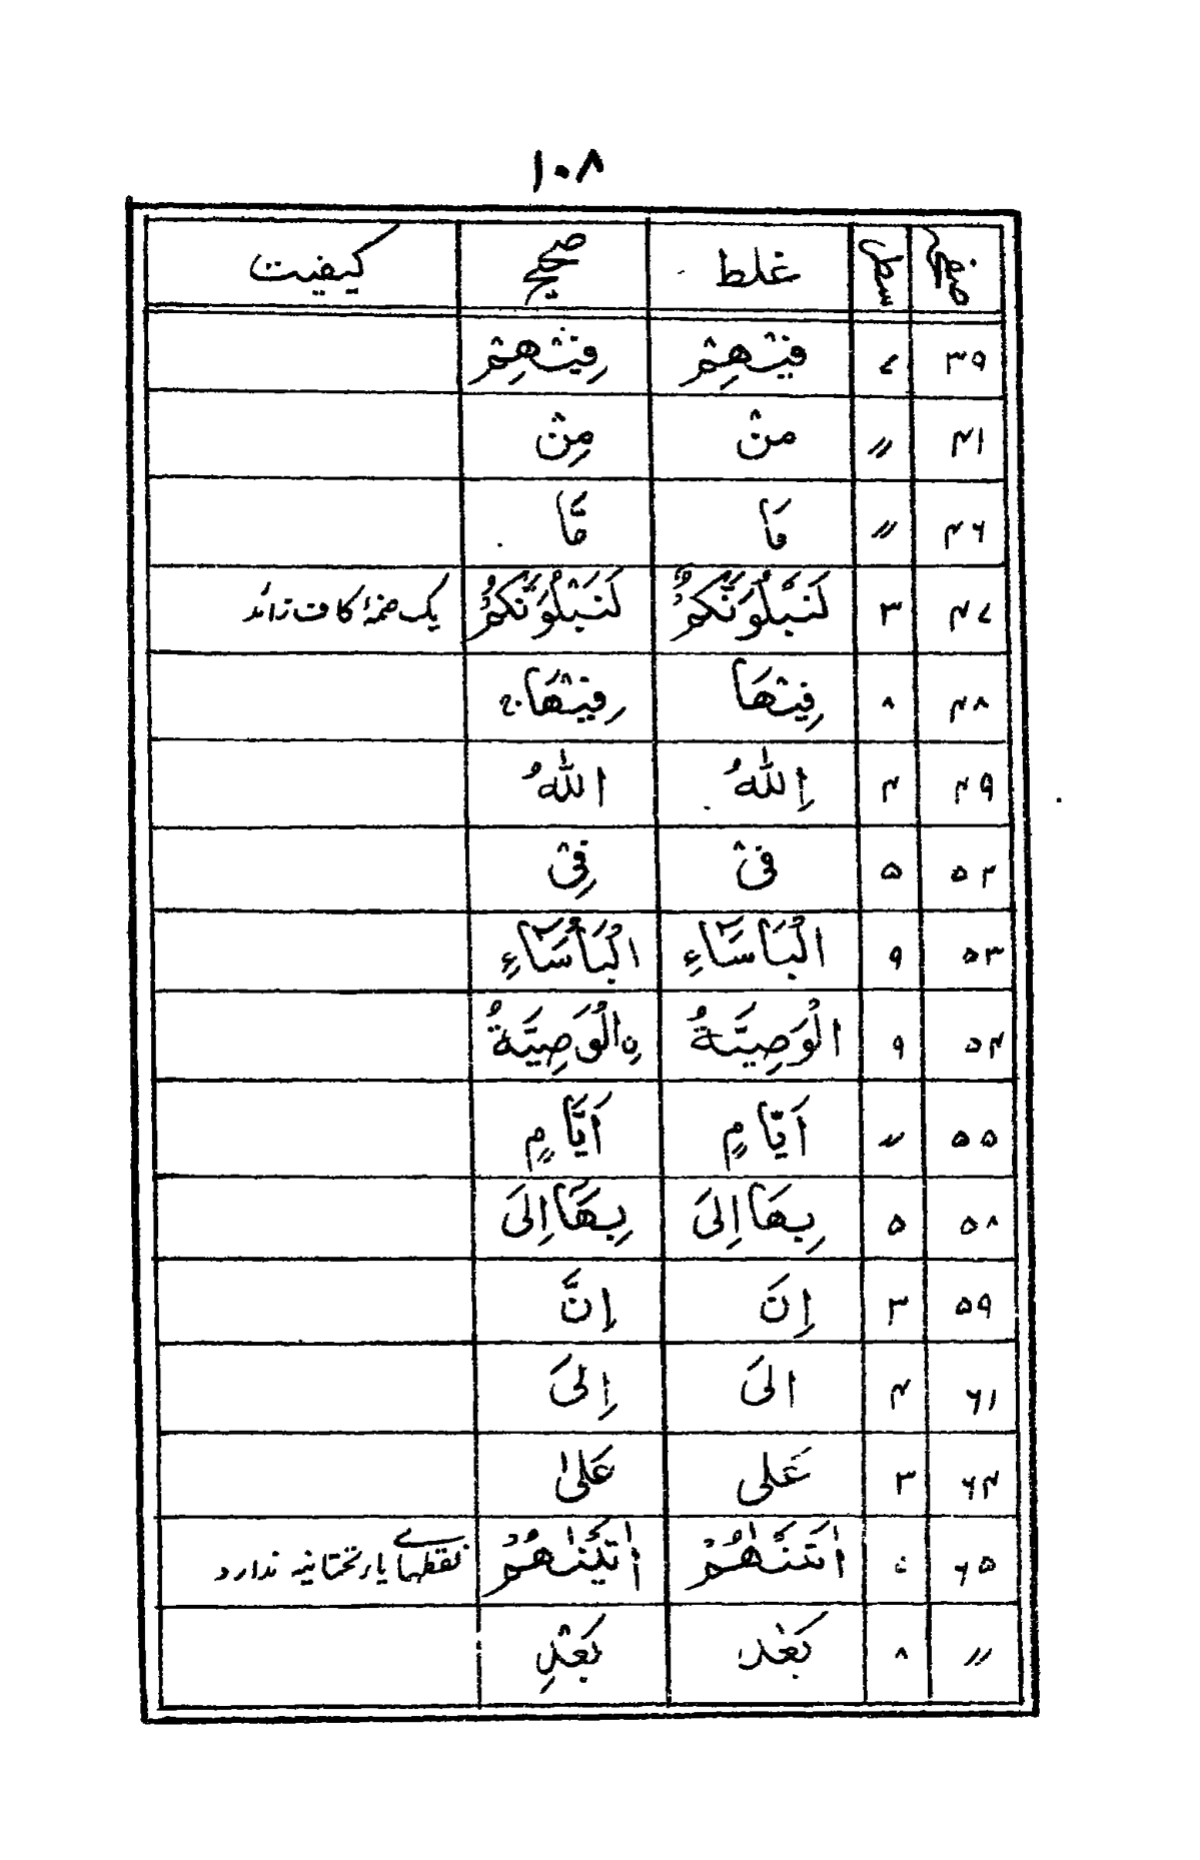 ۱۰۸
صفحہ سطر غلط صحیح کیفیت
۳۹ ۷ فِیْهِمْ رفِیْهِمْ
۴۱ 〃 منْ مِنْ
۴۶ 〃 مَا مَّا
۴۷ ۳ لَنَبْلُوَنَّكُمُْ لَنَبْلُوَنَّكُمْ یک ضمهٔ کاف زائد
۴۸ ۸ فِیْهَا فِیْهَاج
۴۹ ۴ اِللّٰهُ اللّٰهُ
۵۲ ۵ فیْ فِیْ
۵۳ ۹ الْبَاسَآءِ الْبَأْسَآءِ
۵۴ ۹ الْوَصِیَّةُ نِ الْوَصِیَّةُ
۵۵ 〃 اَیّامٍ اَیَّامٍ
۵۸ ۵ بِهَا اِلَی بِهَآ اِلَی
۵۹ ۳ اِنَ اِنَّ
۶۱ ۴ الَی اِلَی
۶۴ ۳ عَلی عَلیٰ
۶۵ اٰتَنٰهُمْ اٰتَیْنٰهُمْ نقطهاے یار تحتانیه ندارد
〃 ۸ بَعْد بَعْدِ